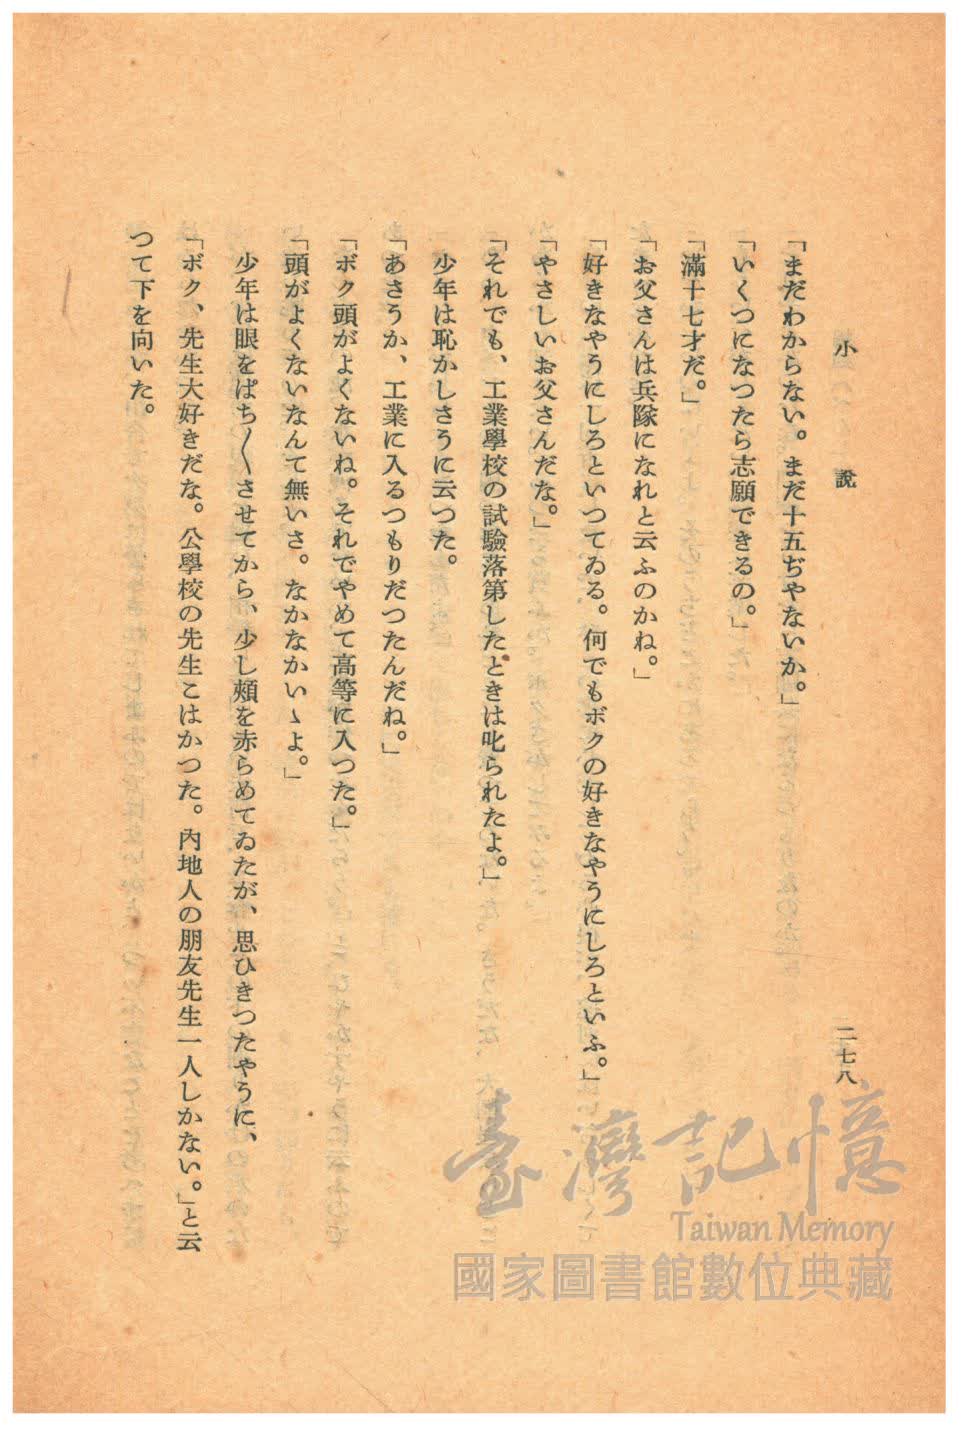 小說
二七八
「まだわからない。まだ十五ぢやないか。」
「いくつになつたら志願できるの。」
「滿十七才だ。」
「お父さんは兵隊になれと云ふのかね。」
「好きなやうにしろといつてゐる。何でもボクの好きなやうにしろといふ。」
「やさしいお父さんだな。」
「それでも、工業學校の試驗落第したときは叱られたよ。」
少年は恥かしさうに云つた。
「あさうか、工業に入るつもりだつたんだね。」
「ボク頭がよくないね。それでやめて高等に入つた。」
「頭がよくないなんて無いさ。なかなかいゝよ。」
少年は眼をぱち〳〵させてから、少し頰を赤らめてゐたが、思ひきつたやうに、
「ボク、先生大好きだな。公學校の先生こはかつた。內地人の朋友先生一人しかない。」と云
つて下を向いた。
臺灣記憶
Taiwan Memory
國家圖書館數位典藏